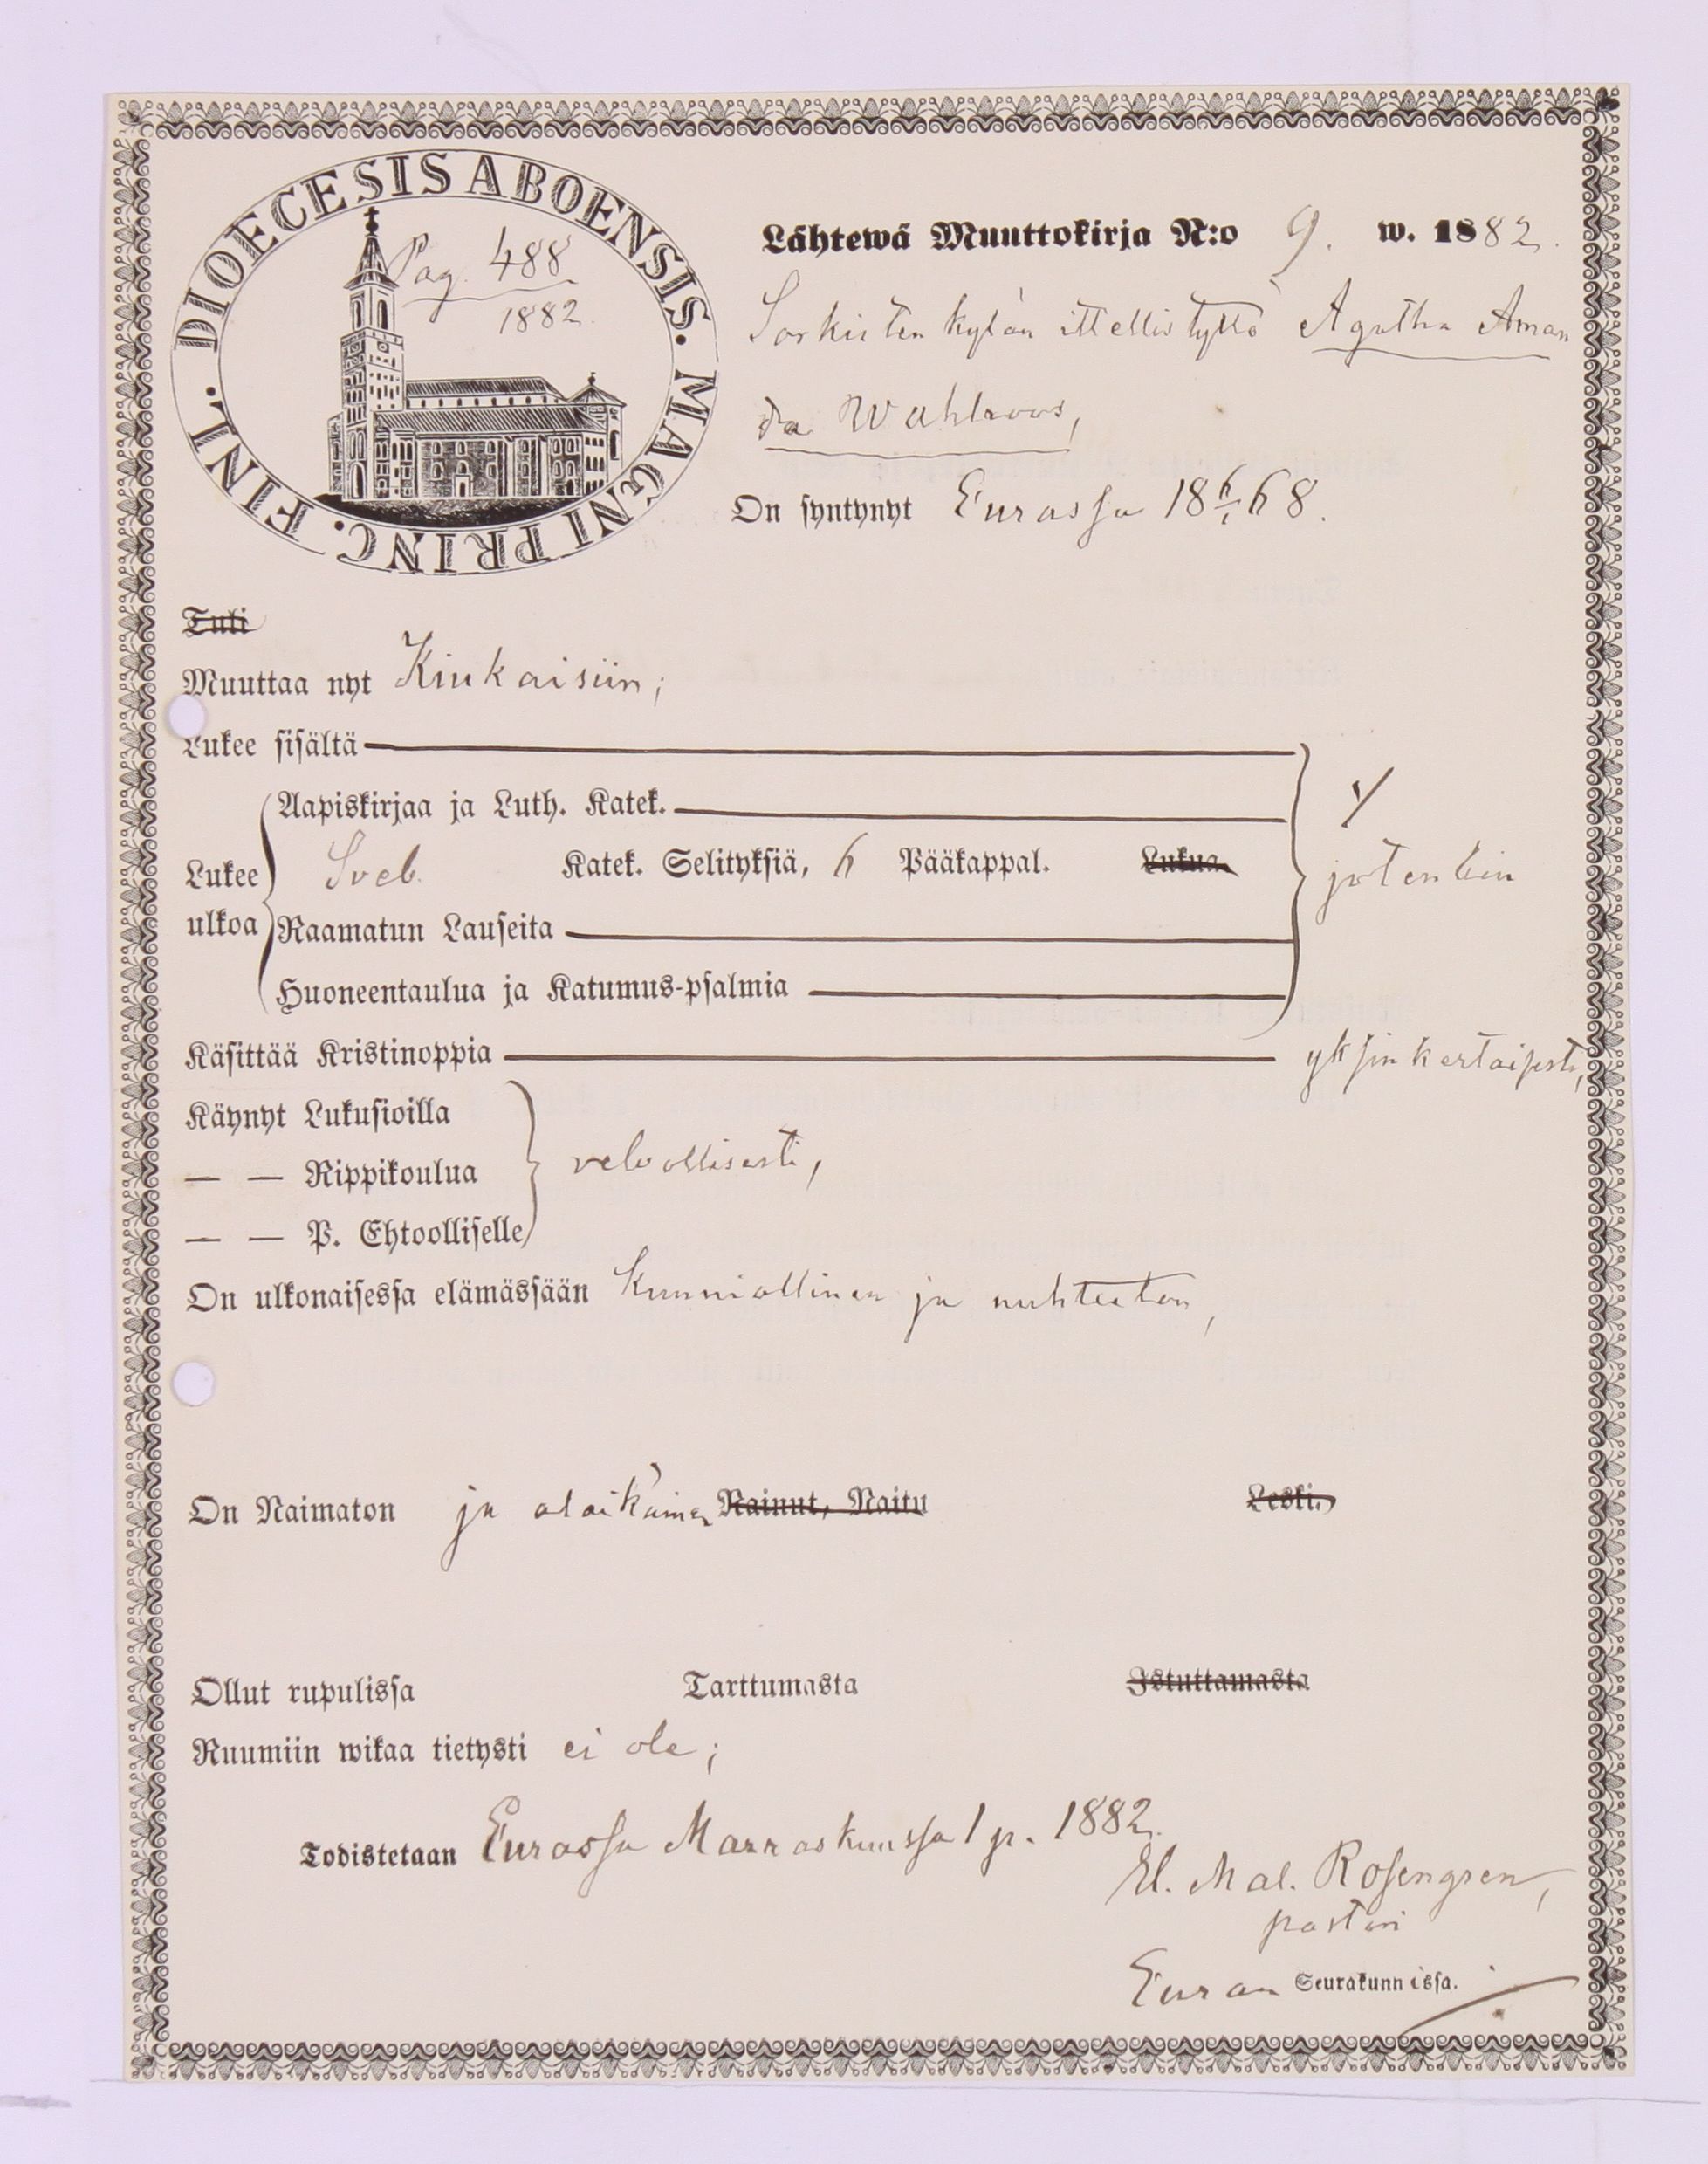 DIOECESIS ABOENSIS. MAGNI PRINC. FINL.
Pag. 488
1882.
Lähtewä Muuttokirja N:o 9. w. 1882.
Sorkisten kylän ittellistyttö Agatha Aman
da Wahlroos,
On syntynyt Eurassa 18 6/1 68.
Tuli
Muuttaa nyt Kiukaisiin;
Lukee sisältä
Aapiskirjaa ja Luth. Katek.
Lukee Sveb. Katek. Selityksiä, 6 Pääkappal. Lukua jotenkin
ulkoa Raamatun Lauseita
Huoneentaulua ja Katumus-psalmia
Käsittää Kristinoppia yksinkertaisesti,
Käynyt Lukusioilla
— — Rippikoulua velvollisesti,
— — P. Ehtoolliselle
On ulkonaisessa elämässään kunniallinen ja nuhteeton,
On Naimaton ja alaikäinen Nainut, Naitu Leski.
Ollut rupulissa Tarttumasta Istuttamasta
Ruumiin wikaa tietysti ei ole;
Todistetaan Eurassa Marraskuussa 1 p. 1882.
El. Mal. Rosengren,
pastori
Euran Seurakunnissa.